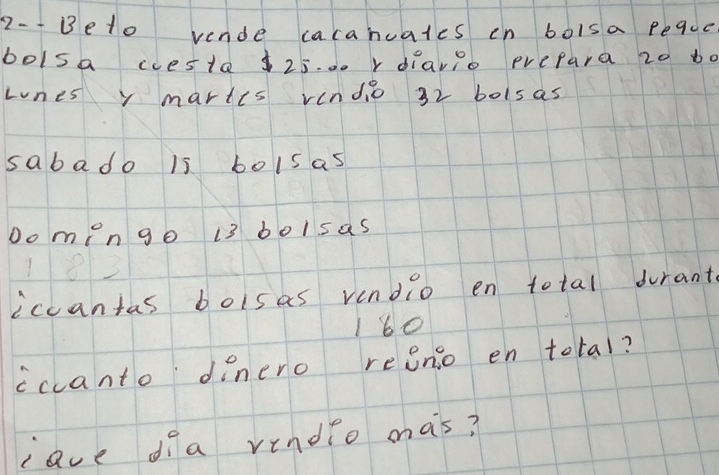 2-- Beto vende cacahuates en bolsa peque
bolsa cuesta $25.00 y diario prepara 20 bo
Lunes y martes vendio 32 bolsas
sabado 15 bolsas
Domingo 13 bolsas
183
¿cuantas bolsas vendio en total durante
160
¿cuanto dinero reunio en total?
¿que dia vendio más?